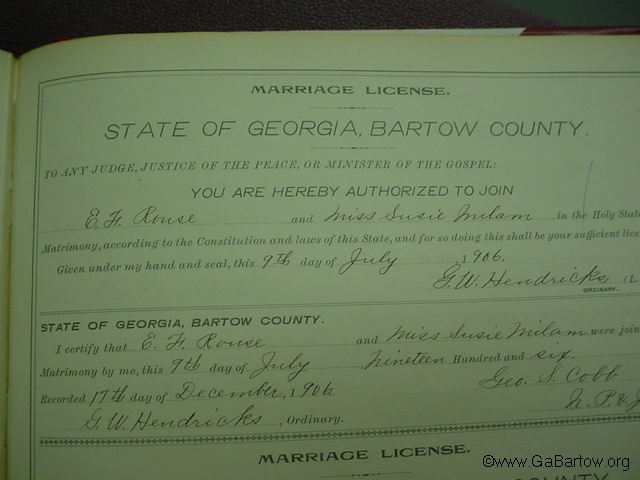 MARRIAGE LICENSE.
STATE OF GEORGIA, BARTOW COUNTY.
TO ANY JUDGE, JUSTICE OF THE PEACE, OR MINISTER OF THE GOSPEL:
YOU ARE HEREBY AUTHORIZED TO JOIN
E. F. Rouse and Miss Susie Milam in the Holy State
Matrimony, according to the Constitution and laws of this State, and for so doing this shall be your sufficient lice
Given under my hand and seal, this 9th day of July , 1906.
G. W. Hendricks (L.
ORDINARY.
STATE OF GEORGIA, BARTOW COUNTY.
I certify that E. F. Rouse and Miss Susie Milam were join
Matrimony by me, this 9th day of July , Nineteen Hundred and six.
Geo. S. Cobb
Recorded 17th day of December, 1906
N. P. & J
G. W. Hendricks , Ordinary.
MARRIAGE LICENSE.
COUNTY
©www.GaBartow.org